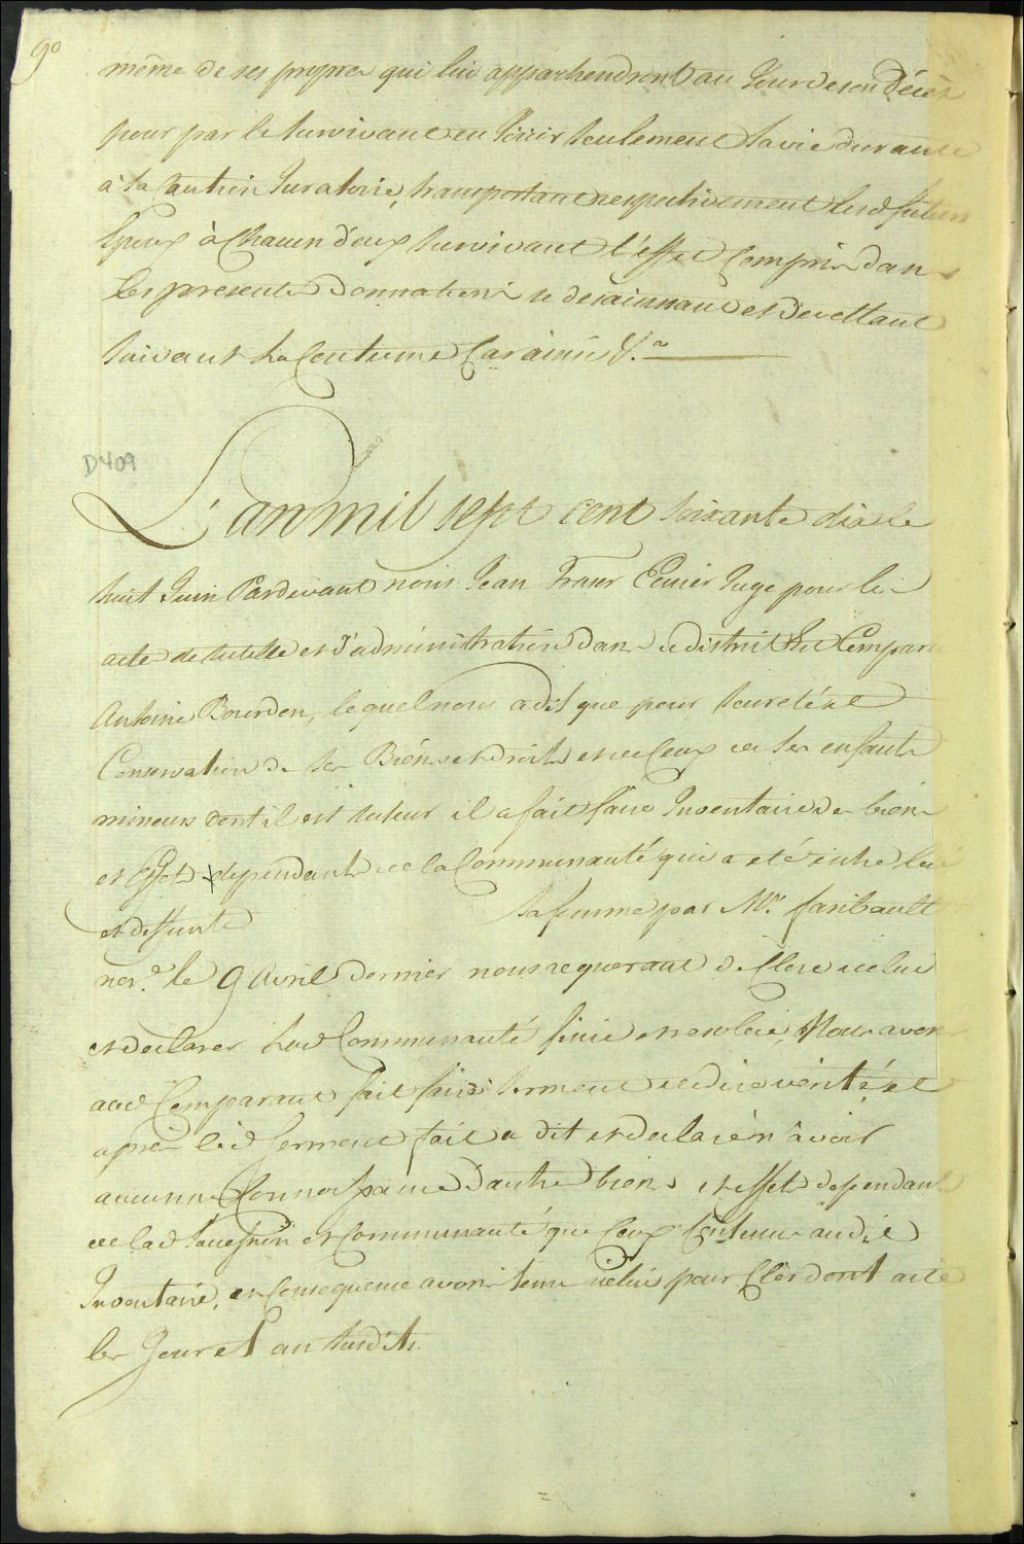 90
même de ses propres qui lui appartiendront au Jour de son décès
pour par le survivant en Jouir seulement sa vie durante
à sa caution Juratoire, transportant respectivement lesd futurs
Epoux à Chacun d'eux survivant l'effet Compris dans
les presentes Donnations se desaisissant et devettant
suivant La Coutume Car ainsi &.a
D409
L'an mil sept cent soixante dix le
huit Juin Pardevant nous Jean Juge pour les
acte de tutelle et d'administration dans ce district Est Comparu
Antoine Bourdon, lequel nous a dit que pour sureté et
Conservation de ses Biens et droits et de Ceux de ses enfants
mineurs dont il est tuteur il a fait faire Inventaire des biens
et Effets dependants de la Communauté qui a eté entre lui
et deffunte sa femme par Mr. faribault
nore. le 9 Avril dernier nous requerant de Clore icelui
et declarer Lad Communauté finie et resolue, Nous avons
aud Comparant fait faire serment de dire verité et
après led serment fait a dit et declaré n'avoir
aucunne Connoissance d'autres biens et effets dependants
de lad sucession et Communauté que Ceux Contenus audit
Inventaire, en Consequence avons tenu icelui pour Clos dont acte
les Jour et an susdits.